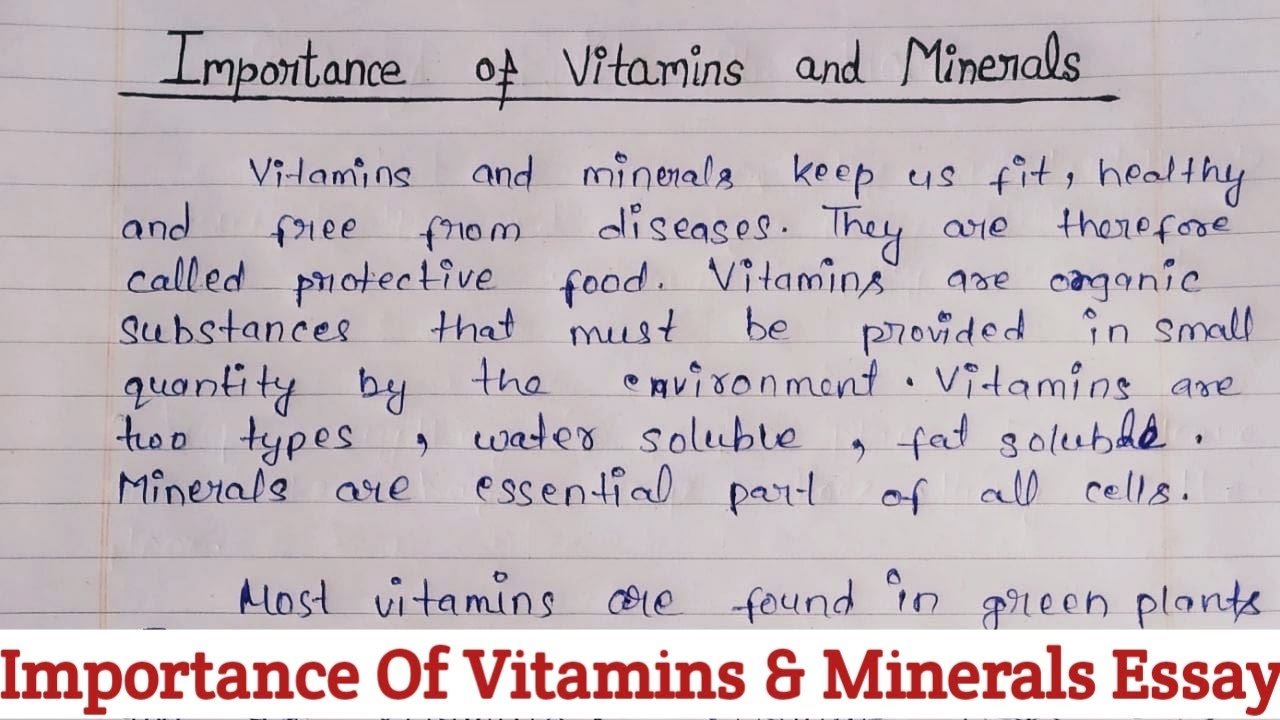 Importance of Vitamins and Minerals
Vitamins and minerals keep us fit, healthy
and free from diseases. They are therefore
called protective food. Vitamins are organic
substances that must be provided in small
quantity by the environment. Vitamins are
two types, water soluble, fat soluble.
Minerals are essential part of all cells.
Most vitamins are found in green plants
Importance Of Vitamins & Minerals Essay